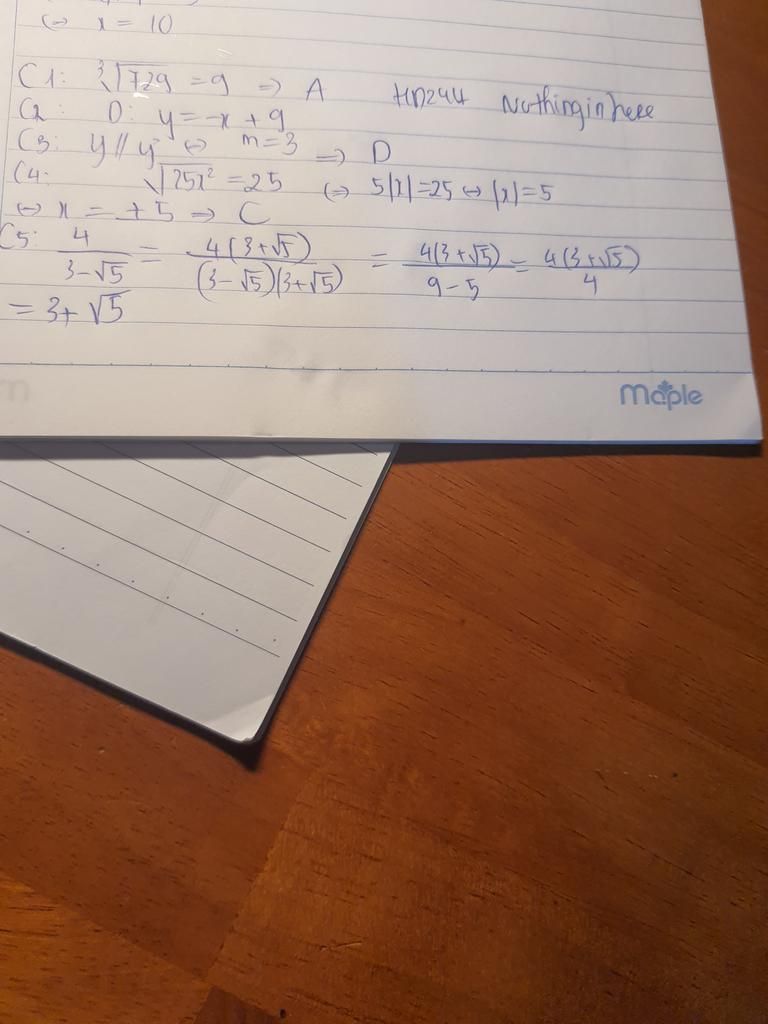 ⇔ x = 10
C1: ∛729 = 9 ⇒ A HD244 Nothinginhere
C2: D: y = -x + 9
C3: y // y' ⇔ m = 3 ⇒ D
C4: √25x² = 25 ⇔ 5|x| = 25 ⇔ |x| = 5
⇔ x = ±5 ⇒ C
C5: 4/(3-√5) = 4(3+√5)/((3-√5)(3+√5)) = 4(3+√5)/(9-5) = 4(3+√5)/4
= 3+√5
maple